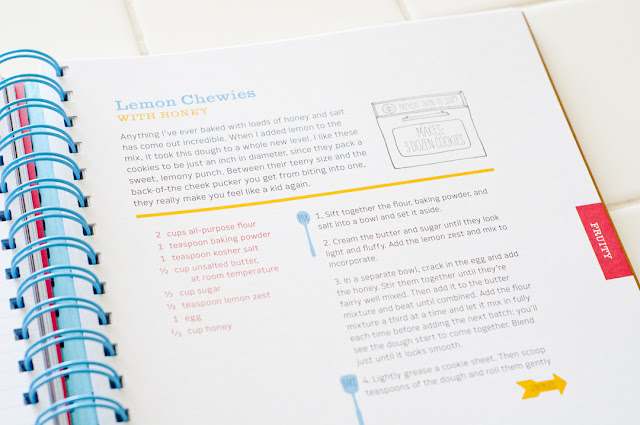 Lemon Chewies
WITH HONEY
Anything I've ever baked with loads of honey and salt
has come out incredible. When I added lemon to the
mix, it took this dough to a whole new level. I like these
cookies to be just an inch in diameter, since they pack a
sweet, lemony punch. Between their teeny size and the
back-of-the cheek pucker you get from biting into one,
they really make you feel like a kid again.
PREHEAT OVEN TO
MAKES
5 DOZEN COOKIES
2 cups all-purpose flour
1 teaspoon baking powder
1 teaspoon kosher salt
½ cup unsalted butter,
at room temperature
cup sugar
½ teaspoon lemon zest
1 egg
⅓ cup honey
MIX
1. Sift together the flour, baking powder, and
salt into a bowl and set it aside.
2. Cream the butter and sugar until they look
light and fluffy. Add the lemon zest and mix to
incorporate.
3. In a separate bowl, crack in the egg and add
the honey. Stir them together until they're
fairly well mixed. Then add it to the butter
mixture and beat until combined. Add the flour
mixture a third at a time and let it mix in fully
each time before adding the next batch; you'll
see the dough start to come together. Blend
just until it looks smooth.
4. Lightly grease a cookie sheet. Then scoop
teaspoons of the dough and roll them gently
FRUITY